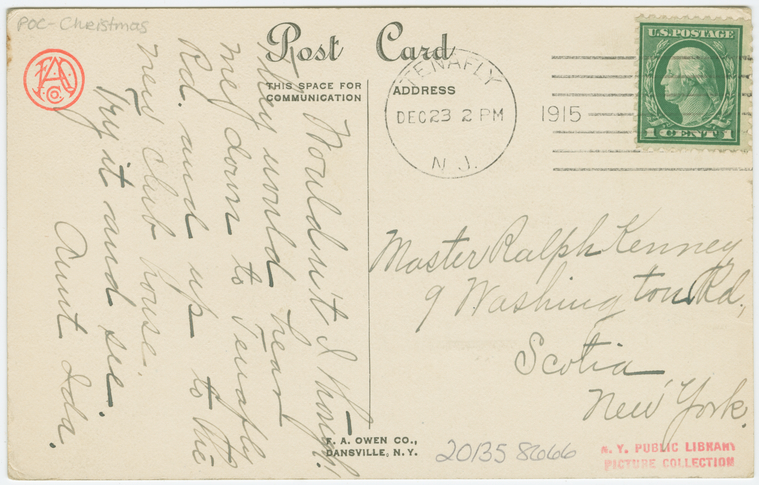 POC-Christmas
Post Card
THIS SPACE FOR
COMMUNICATION
ADDRESS
TENAFLY
DEC 23 2 PM
N. J.
1915
U.S. POSTAGE
1 CENT 1
Wouldn't I though!
They would hear
me down to Tenafly
Rd. and up to the
new Club house.
Try it and see.
Aunt Ida.
Master Ralph Kenney
9 Washington Rd,
Scotia
New York.
F. A. OWEN CO.,
DANSVILLE, N. Y.
20135 8666
N. Y. PUBLIC LIBRARY
PICTURE COLLECTION